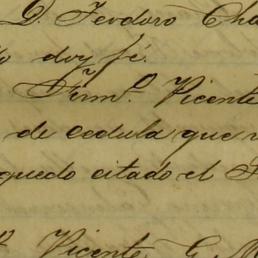 D. Teodoro Cha
doy fé.
Firmº. Vicente
de cedula que
quedo citado el
Vicente G. M